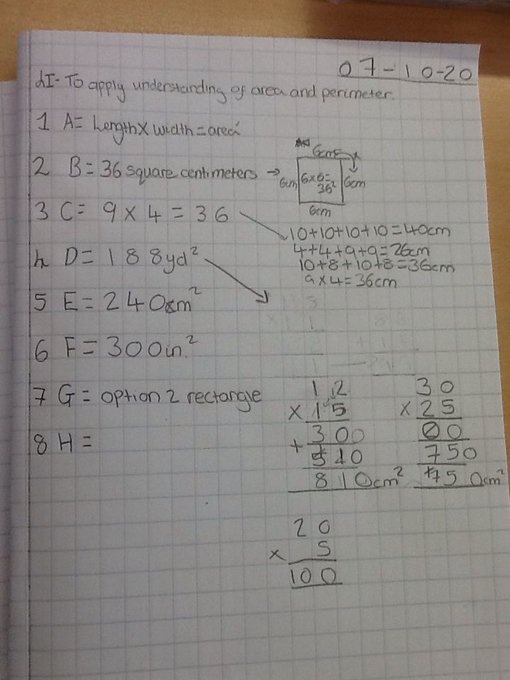 07-10-20
LI- To apply understanding of area and perimeter.
1 A= Length x width = area
2 B= 36 square centimeters →
6cm
6cm 6x6= 36² 6cm
6cm
3 C= 9 x 4 = 36
10+10+10+10=40cm
4+4+9+9=26cm
10+8+10+8=36cm
9x4=36cm
4 D= 188yd²
5 E= 240cm²
6 F= 300in²
7 G= option 2 rectangle
8 H=
12
x 15
300
+ 510
810cm²
30
x 25
00
750
750cm²
20
x 5
100